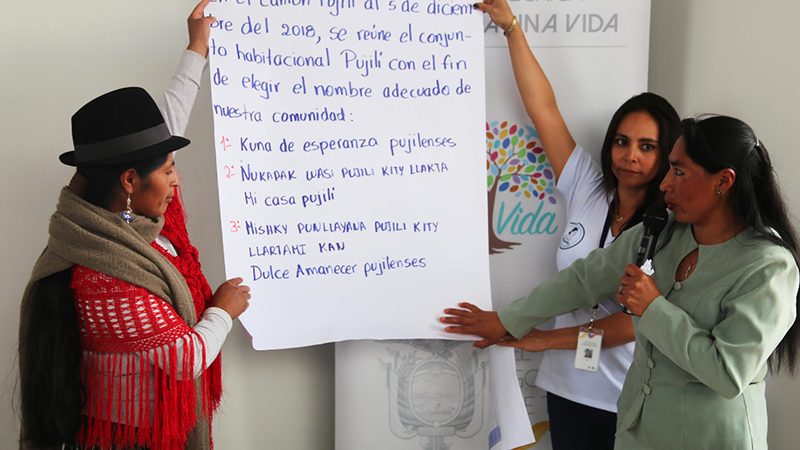 en el Cantón Pujilí al 5 de diciem-
bre del 2018, se reúne el conjun-
to habitacional Pujilí con el fin
de elegir el nombre adecuado de
nuestra comunidad:
1: Kuna de esperanza pujilenses
2: NUKAPAK WASI PUJILI KITY LLAKTA
Mi casa pujilí
3: MISHKY PUNLLAYANA PUJILI KITY
LLARTAMI KAN
Dulce Amanecer pujilenses
UNA VIDA
Vida